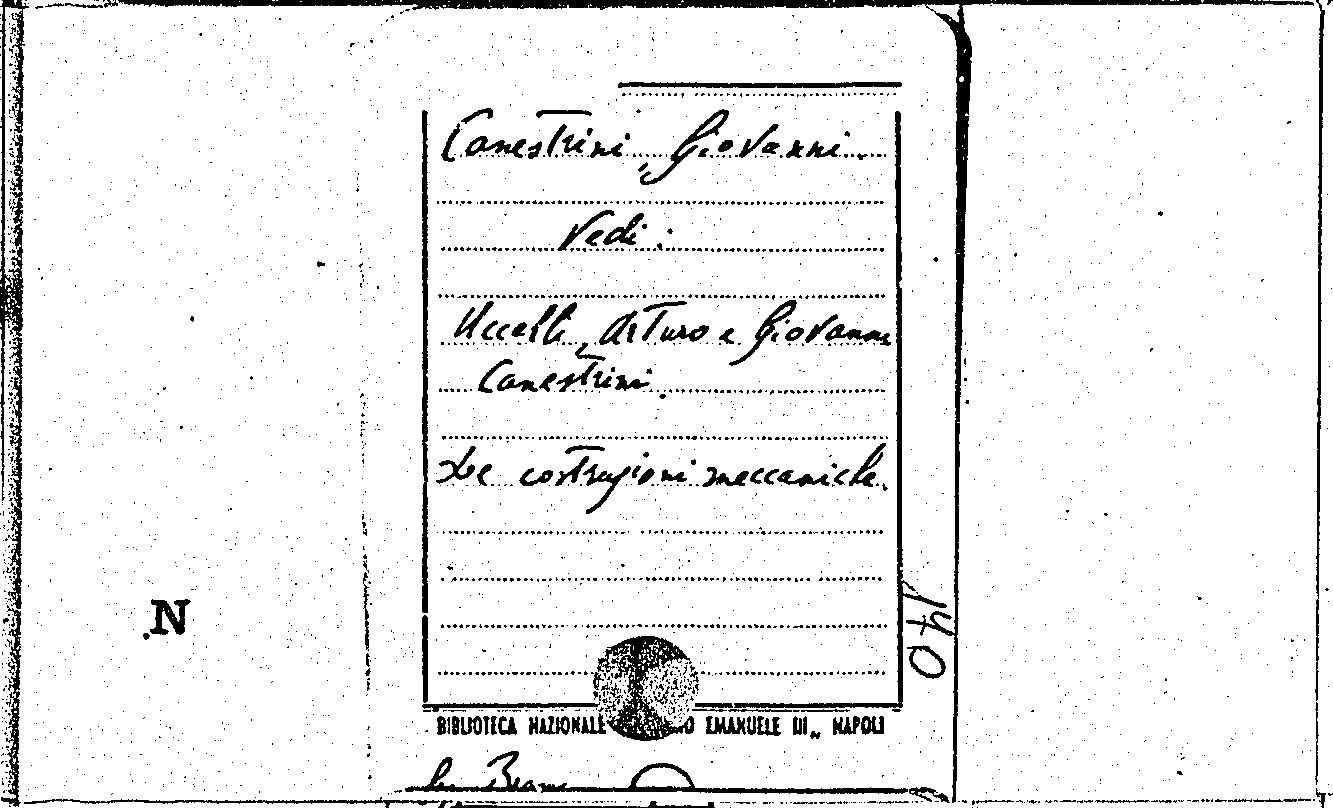 Canestrini, Giovanni.
Vedi:
Uccelli, Arturo e Giovanni
Canestrini.
Le costruzioni meccaniche.
140
N
BIBLIOTECA NAZIONALE EMANUELE III„ NAPOLI